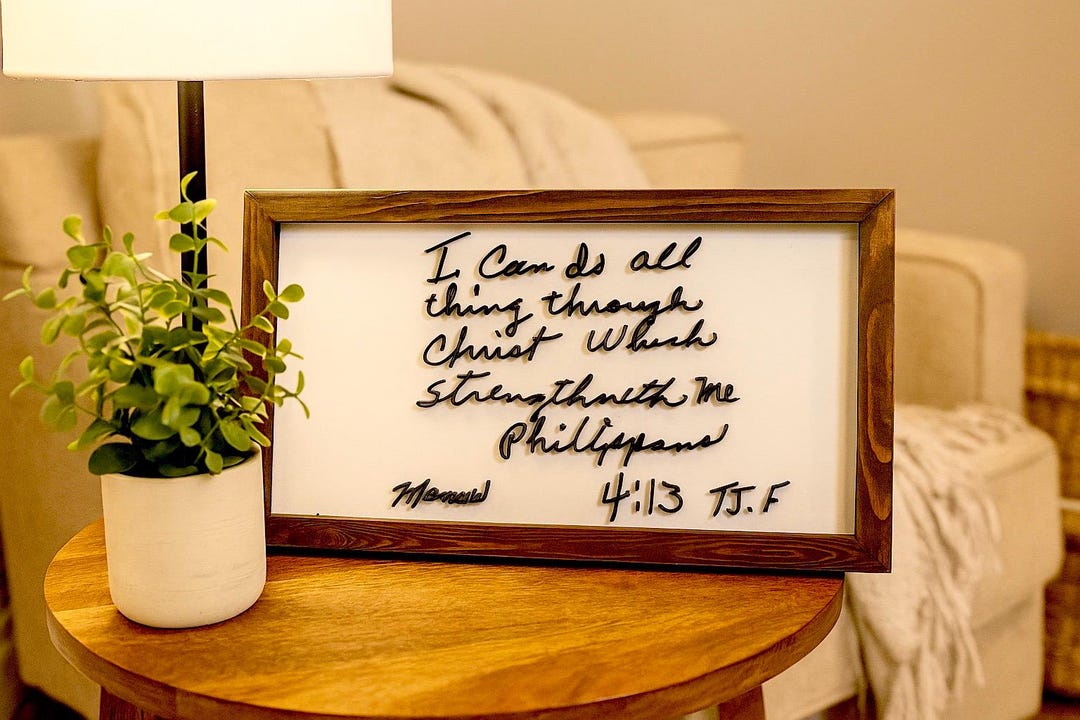 I Can do all
thing through
Christ Which
strengthneth me
Phillippans
4:13 TJ.F